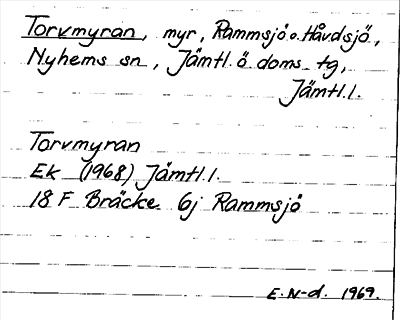 Torvmyran, myr, Rammsjö o. Håvdsjö,
Nyhems sn, Jämtl. ö. doms. tg,
Jämtl. l.
Torvmyran
Ek (1968) Jämtl. l.
18 F Bräcke 6j Rammsjö
E. N-d. 1969.